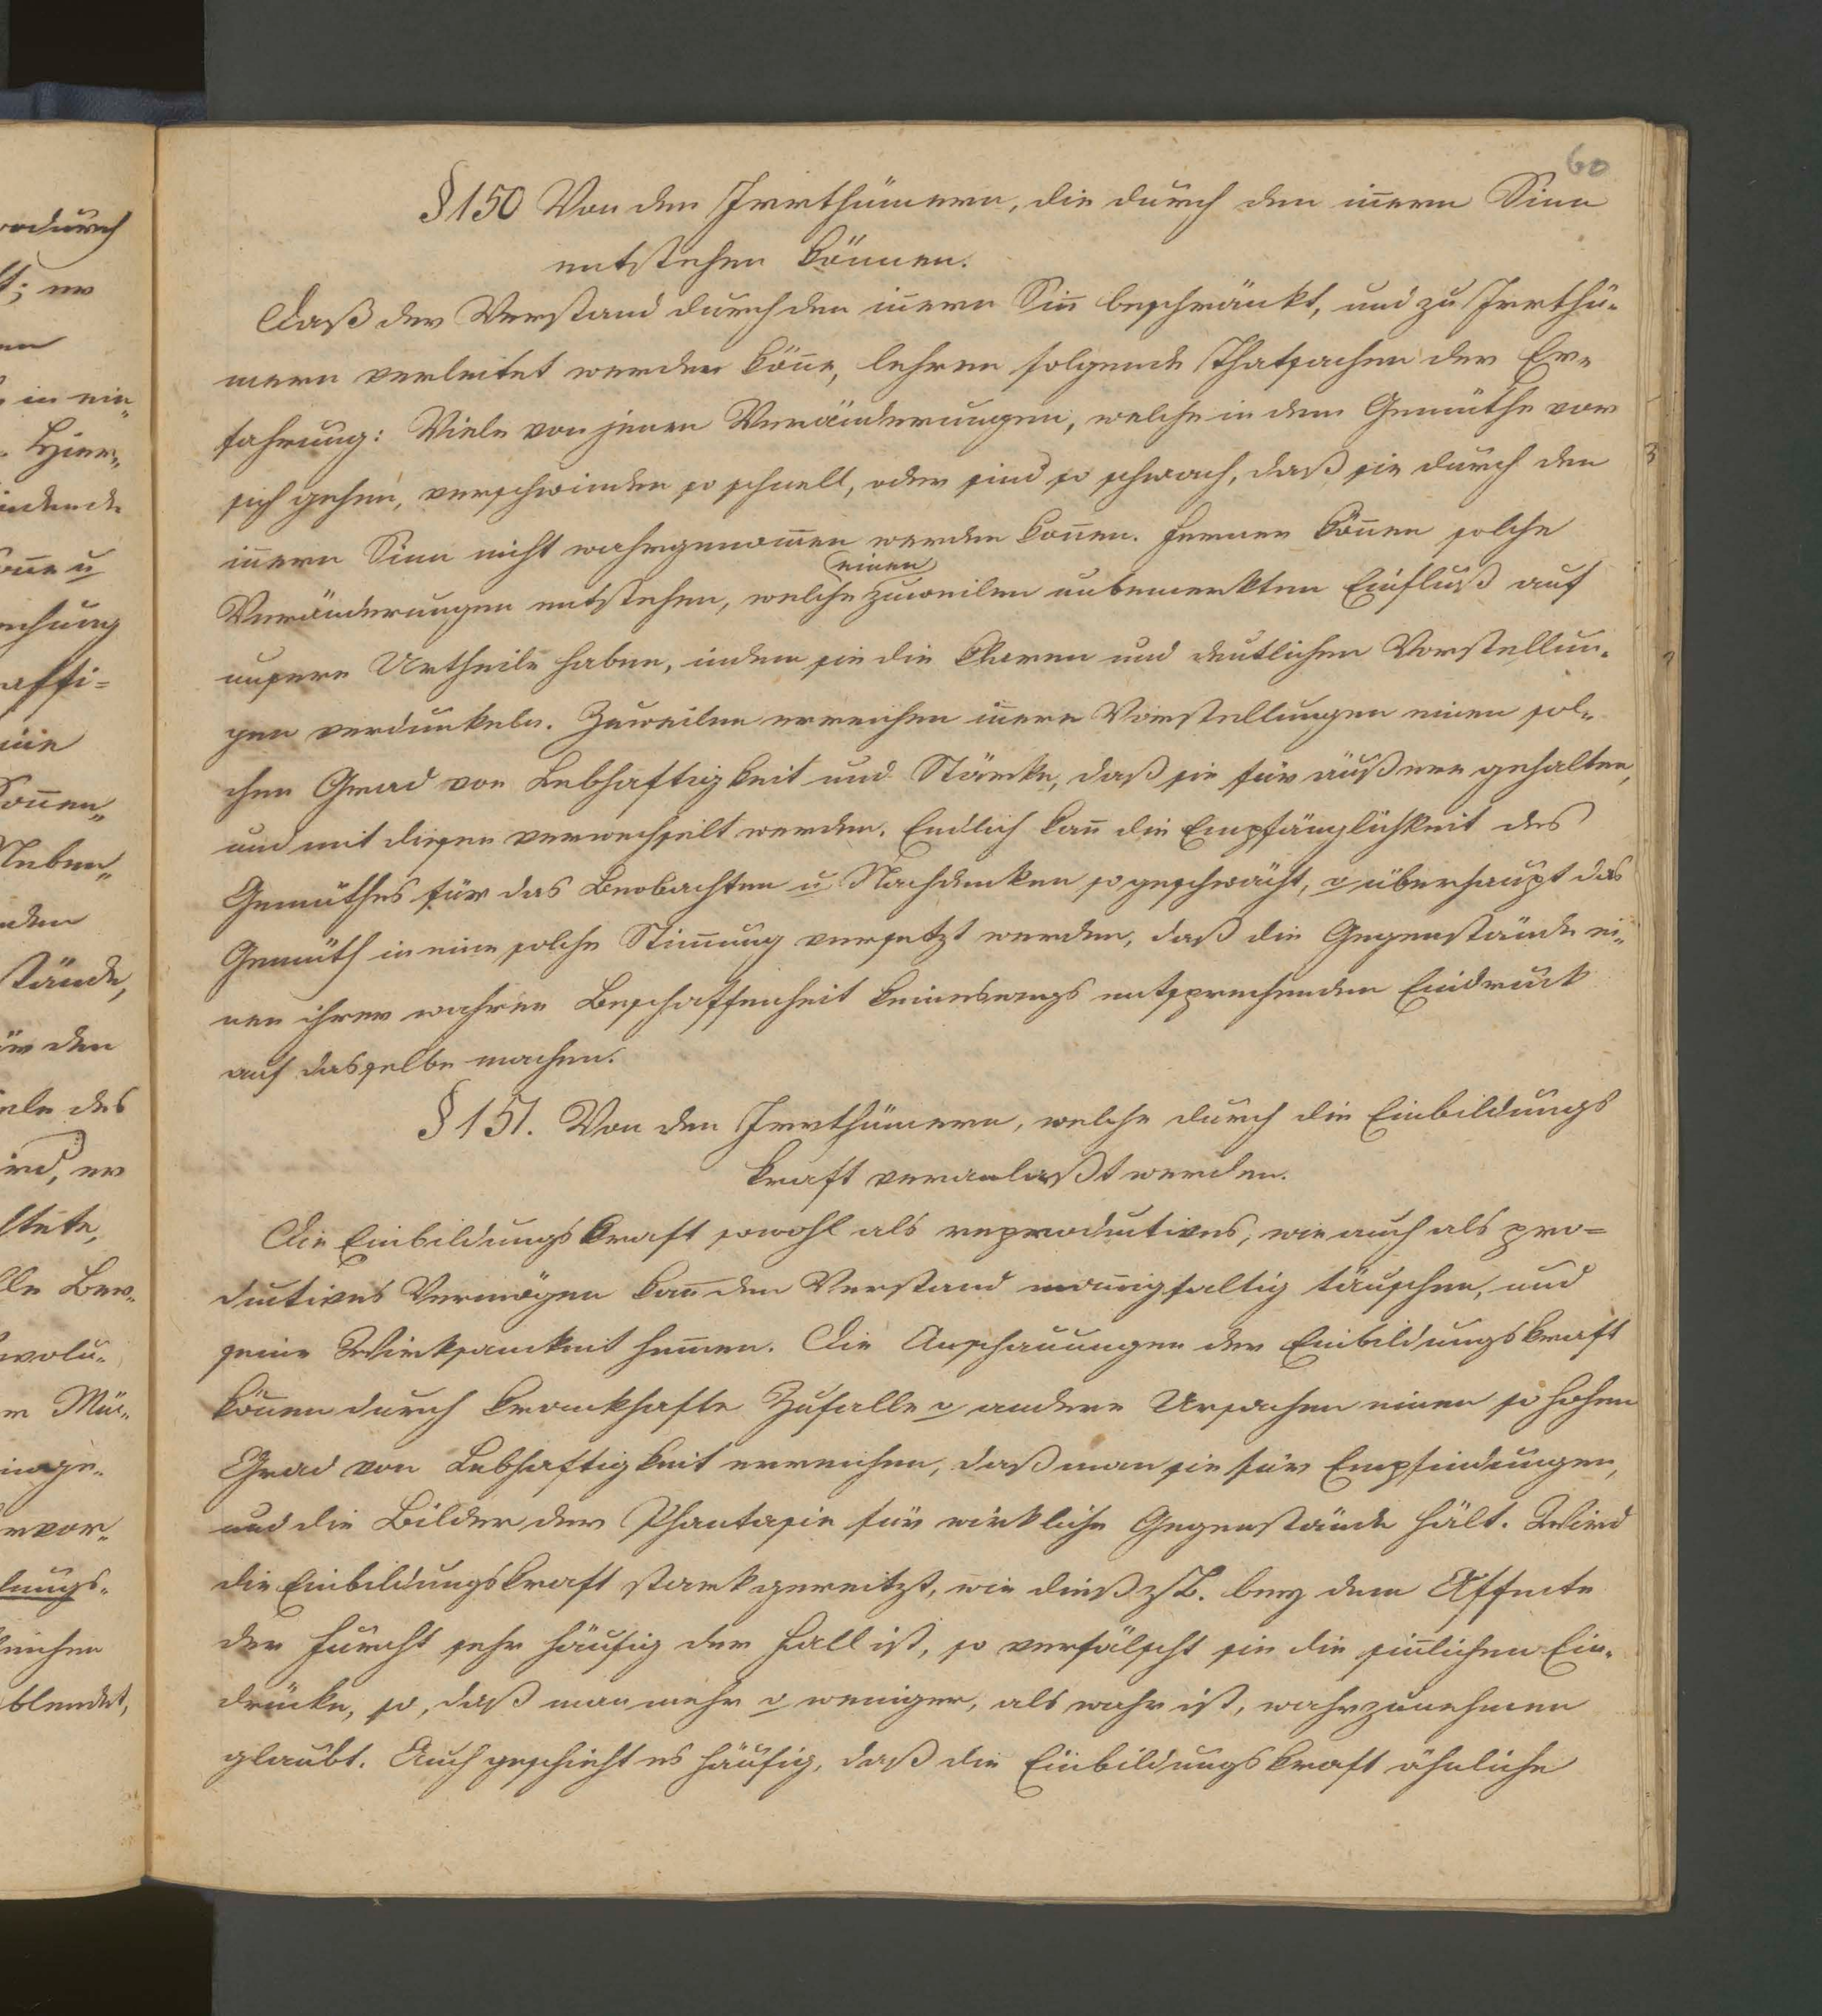 60
§ 150 Von den Irrthümern, die durch den iñern Sinn
entstehen können.
Daß der Verstand durch den iñern Siñ beschränkt, und zu Irrthü-
mern verleitet werden köñe, lehren folgende Thatsachen der Er-
fahrung: Viele von jenen Veränderungen, welche in dem Gemüthe vor
sich gehen, verschwinden so schnell, oder sind so schwach, daß sie durch den
iñern Sinn nicht wahrgenom̅en werden koñen. Ferner köñen solche
einen
Veränderungen entstehen, welche zuweilen unbemerkten Einfluß auf
unsere Urtheile haben, indem sie die klaren und deutlichen Vorstellun-
gen verdunkeln. Zuweilen erreichen iñere Vorstellungen einen sol-
chen Grad von Lebhaftigkeit und Stärke, daß sie für äußere gehalten,
und mit diesen verwechselt werden. Endlich kañ die Empfänglichkeit des
Gemüthes für das Beobachten u Nachdenken so geschwächt, o überhaupt das
Gemüth in eine solche Stim̅ung versetzt werden, daß die Gegenstände ei-
nen ihrer wahren Beschaffenheit keineswegs entsprechenden Eindruck
auf dasselbe machen.
§ 151. Von den Irrthümern, welche durch die Einbildungs
kraft veranlaßt werden.
Die Einbildungskraft sowohl als reproductives, wie auch als pro=
ductives Vermögen kañ den Verstand mañigfaltig täuschen, und
seine Wirksamkeit hem̅en. Die Anschauungen der Einbildungskraft
köñen durch krankhafte Zufalle o andere Ursachen einen so hohen
Grad von Lebhaftigkeit erreichen, daß man sie für Empfindungen,
und die Bilder der Phantasie für wirkliche Gegenstände hält. Wird
die Einbildungskraft stark gereitzt, wie dieß z.B. bey dem Affecte
der Furcht sehr häufig der Fall ist, so verfälscht sie die siñlichen Ein-
drücke, so, daß man mehr o weniger, als wahr ist, wahrzunehmen
glaubt. Auch geschieht es häufig, daß die Einbildungskraft ähnliche